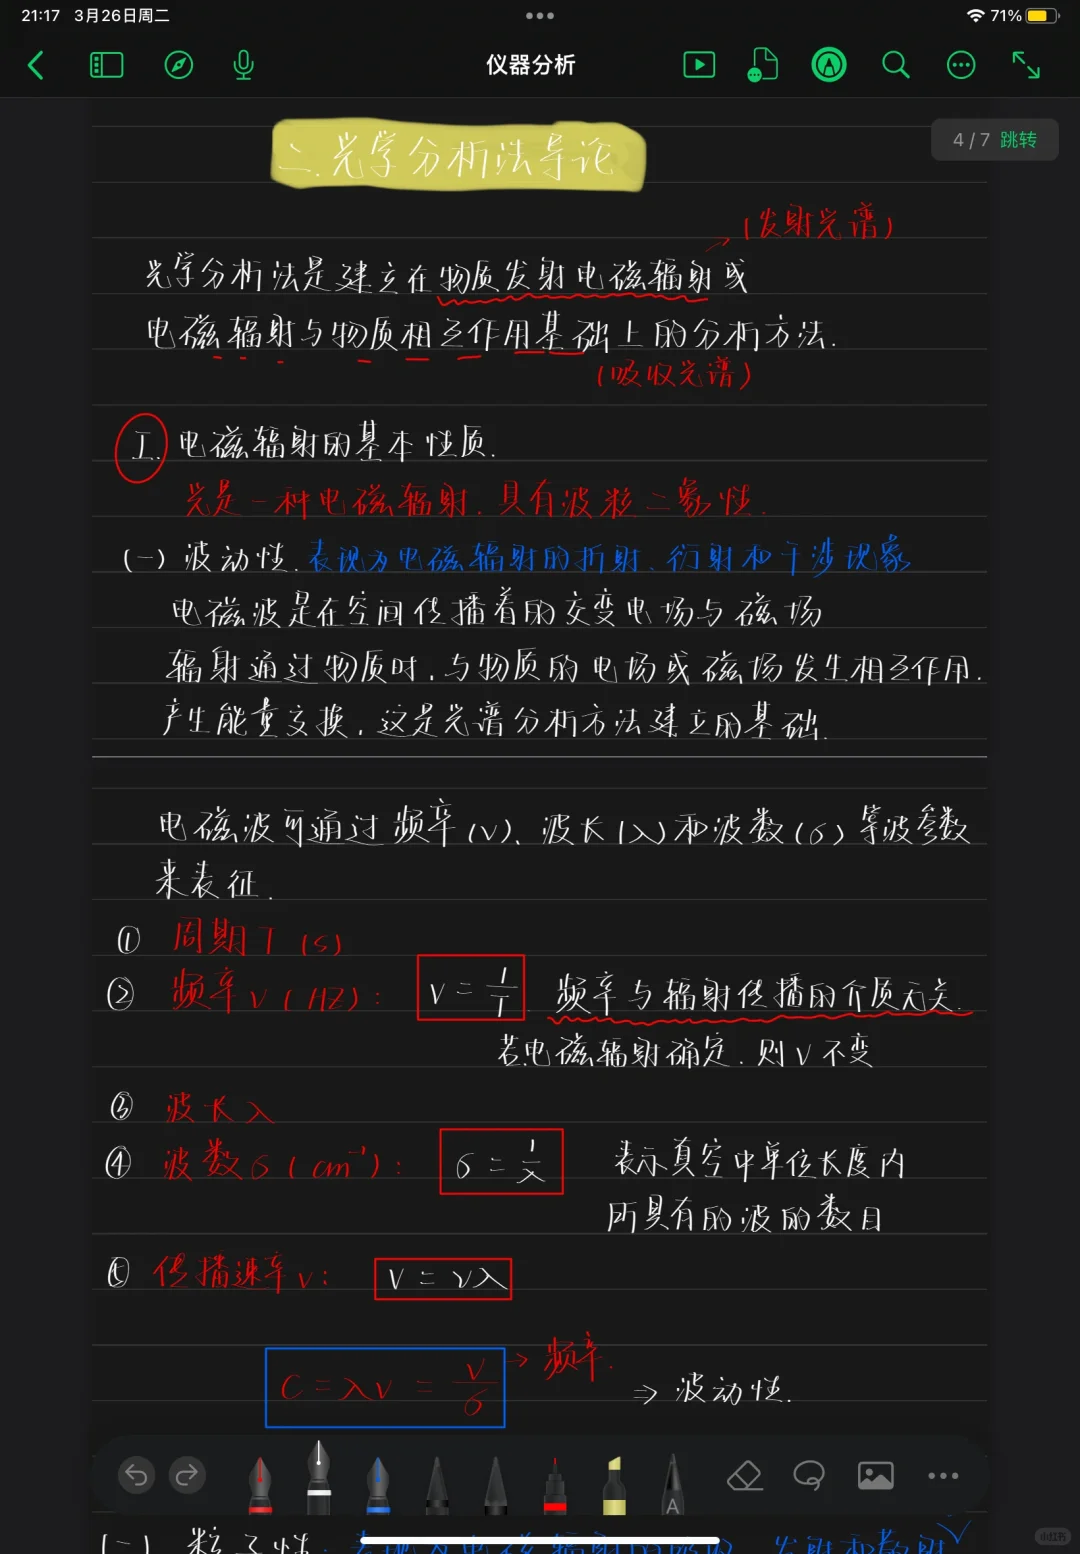 21:17 3月26日周二
71%
仪器分析
4 / 7 跳转
二.光学分析法导论
(发射光谱)
光学分析法是建立在物质发射电磁辐射或
电磁辐射与物质相互作用基础上的分析方法.
(吸收光谱)
I. 电磁辐射的基本性质.
光是一种电磁辐射.具有波粒二象性.
(一) 波动性.表现为电磁辐射的折射、衍射和干涉现象
电磁波是在空间传播着的交变电场与磁场
辐射通过物质时,与物质的电场或磁场发生相互作用.
产生能量交换,这是光谱分析方法建立的基础.
电磁波可通过频率(ν)、波长(λ)和波数(σ)等波参数
来表征.
① 周期T (s)
② 频率ν (HZ): ν = 1/T. 频率与辐射传播的介质无关.
若电磁辐射确定.则ν不变
③ 波长λ
④ 波数σ (cm⁻¹): σ = 1/λ 表示真空中单位长度内
所具有的波的数目
⑤ 传播速率v: v = νλ
C = λν = ν/σ → 频率. ⇒ 波动性.
A
(二) 粒子性:表现为电磁辐射的吸收、发射和散射
小红书